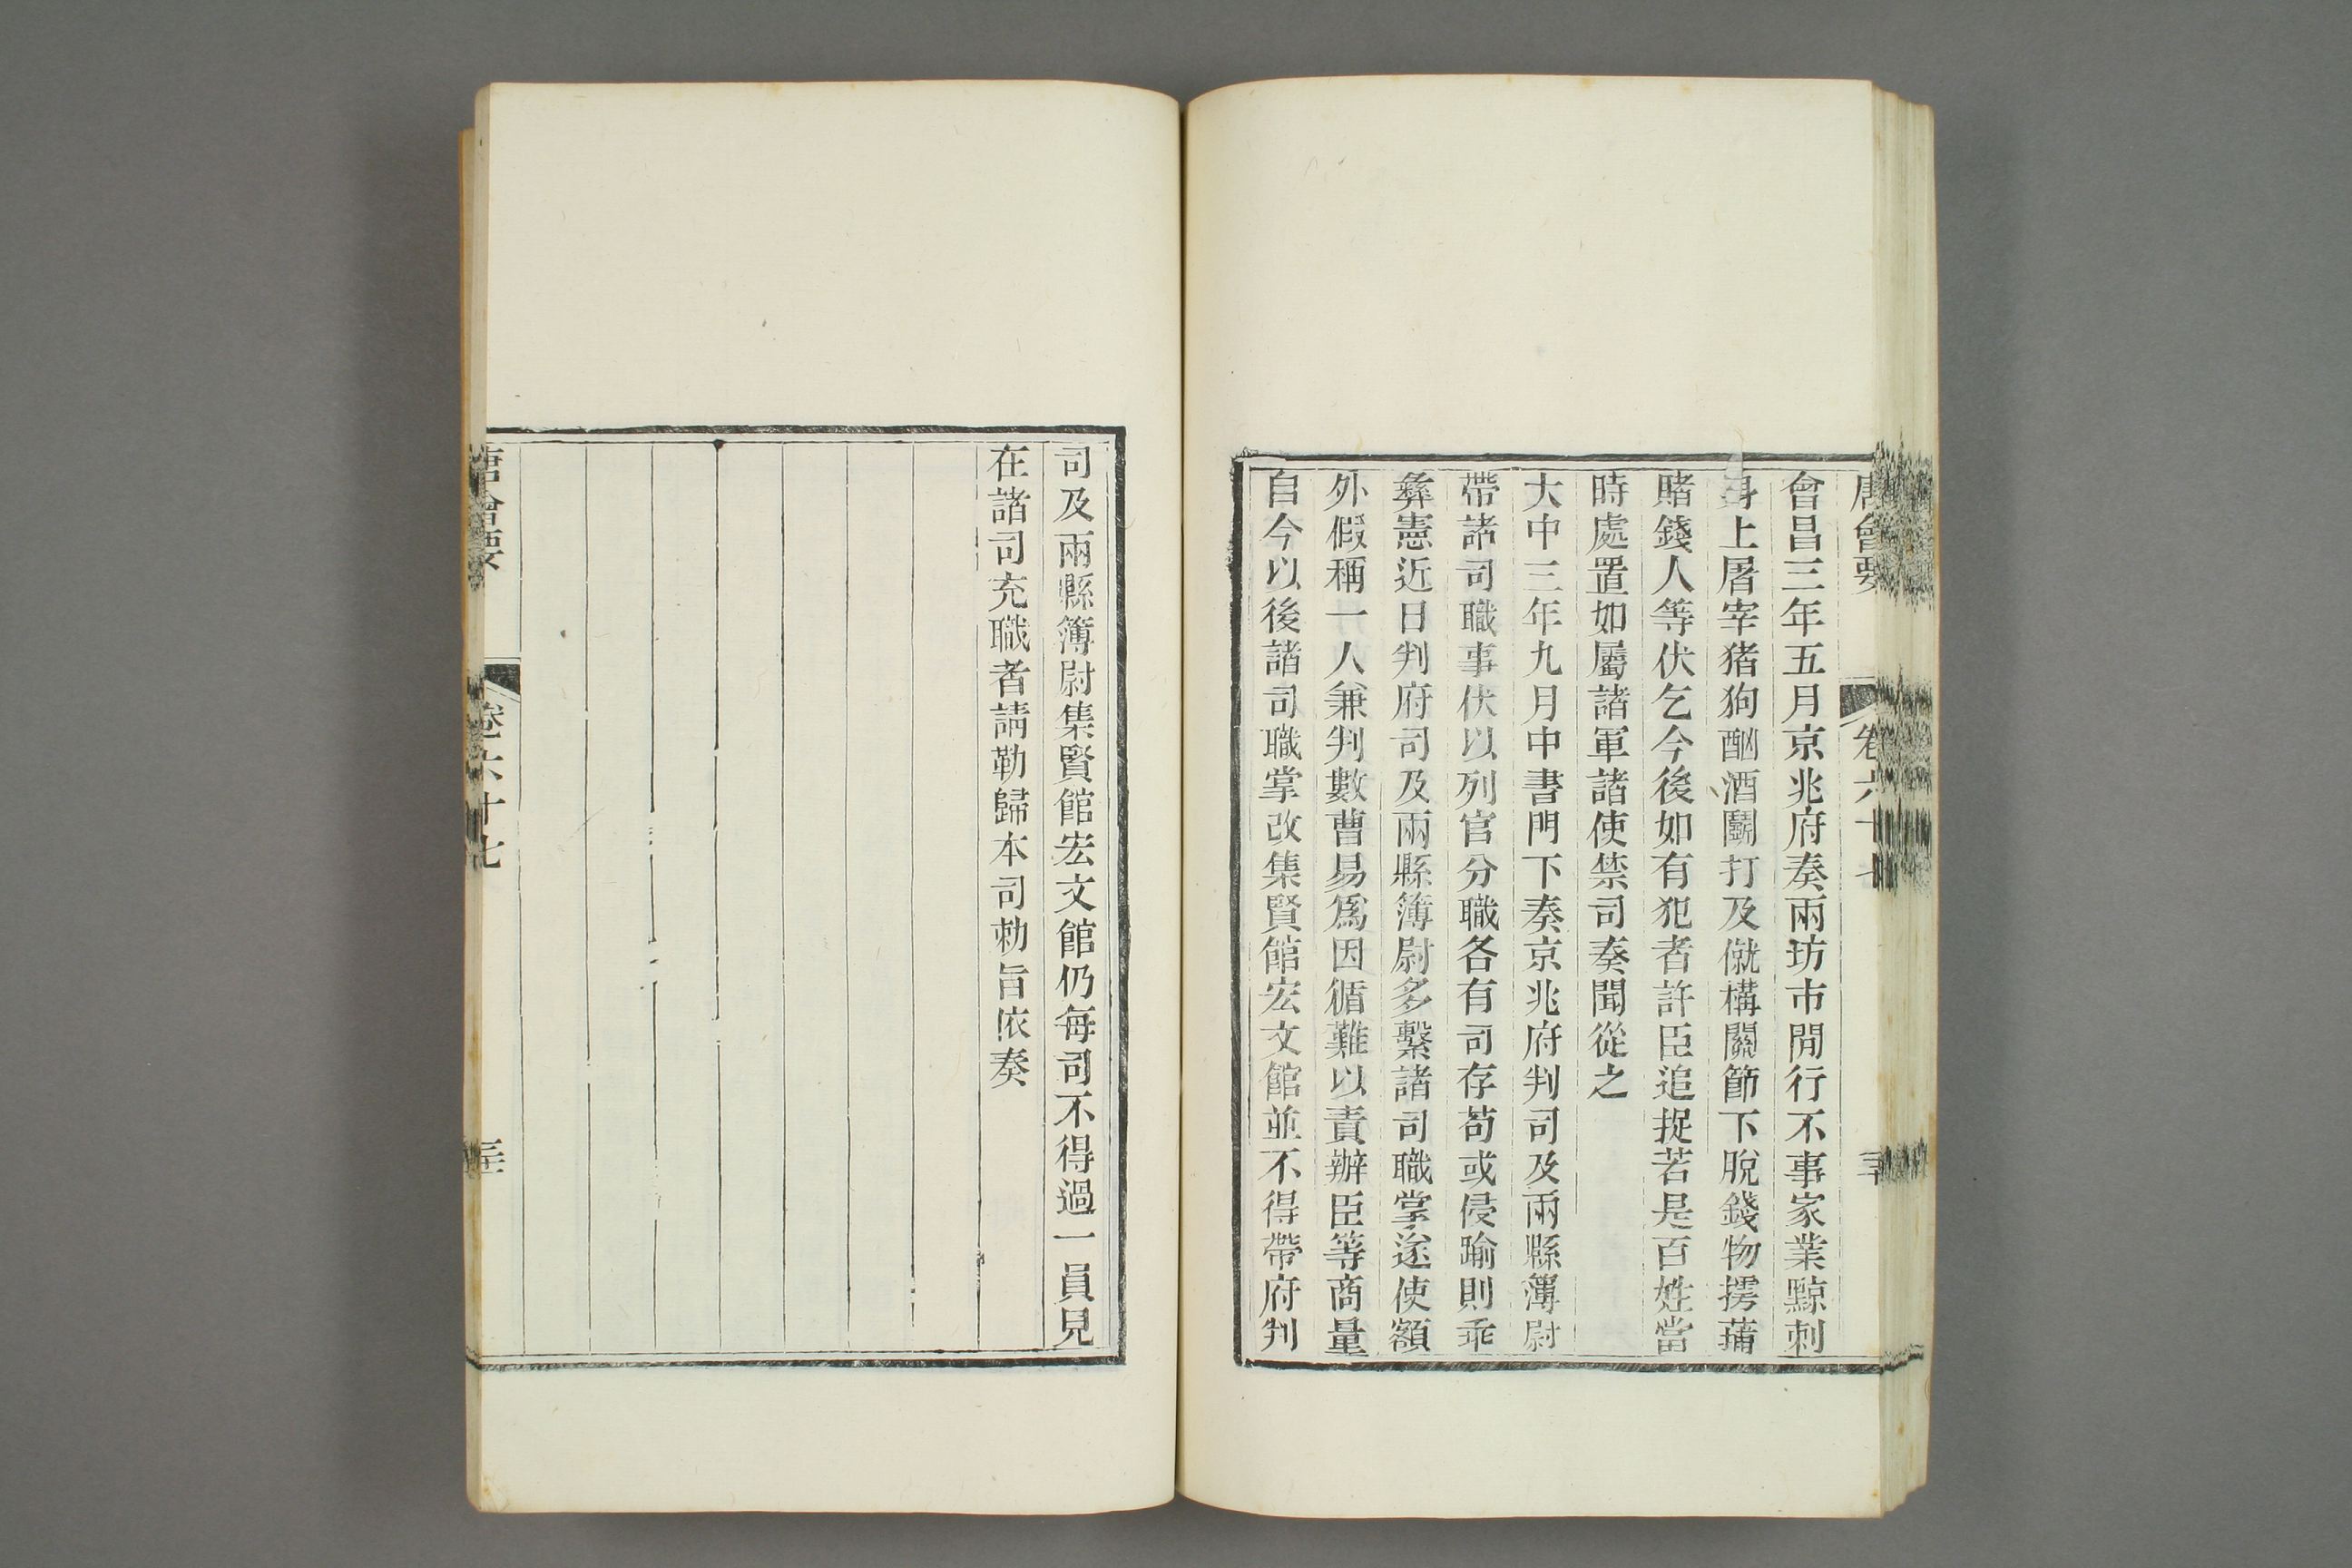 唐會要 卷六十七 三十
會昌三年五月京兆府奏兩坊市閒行不事家業黥刺
身上屠宰猪狗酗酒鬭打及僦構關節下脫錢物摴蒱
賭錢人等伏乞今後如有犯者許臣追捉若是百姓當
時處置如屬諸軍諸使禁司奏聞從之
大中三年九月中書門下奏京兆府判司及兩縣簿尉
帶諸司職事伏以列官分職各有司存苟或侵踰則乖
彝憲近日判府司及兩縣簿尉多繫諸司職掌遂使額
外假稱一人兼判數曹易爲因循難以責辦臣等商量
自今以後諸司職掌改集賢館宏文館並不得帶府判
司及兩縣簿尉集賢館宏文館仍每司不得過一員見
在諸司充職者請勒歸本司勅旨依奏
唐會要 卷六十七